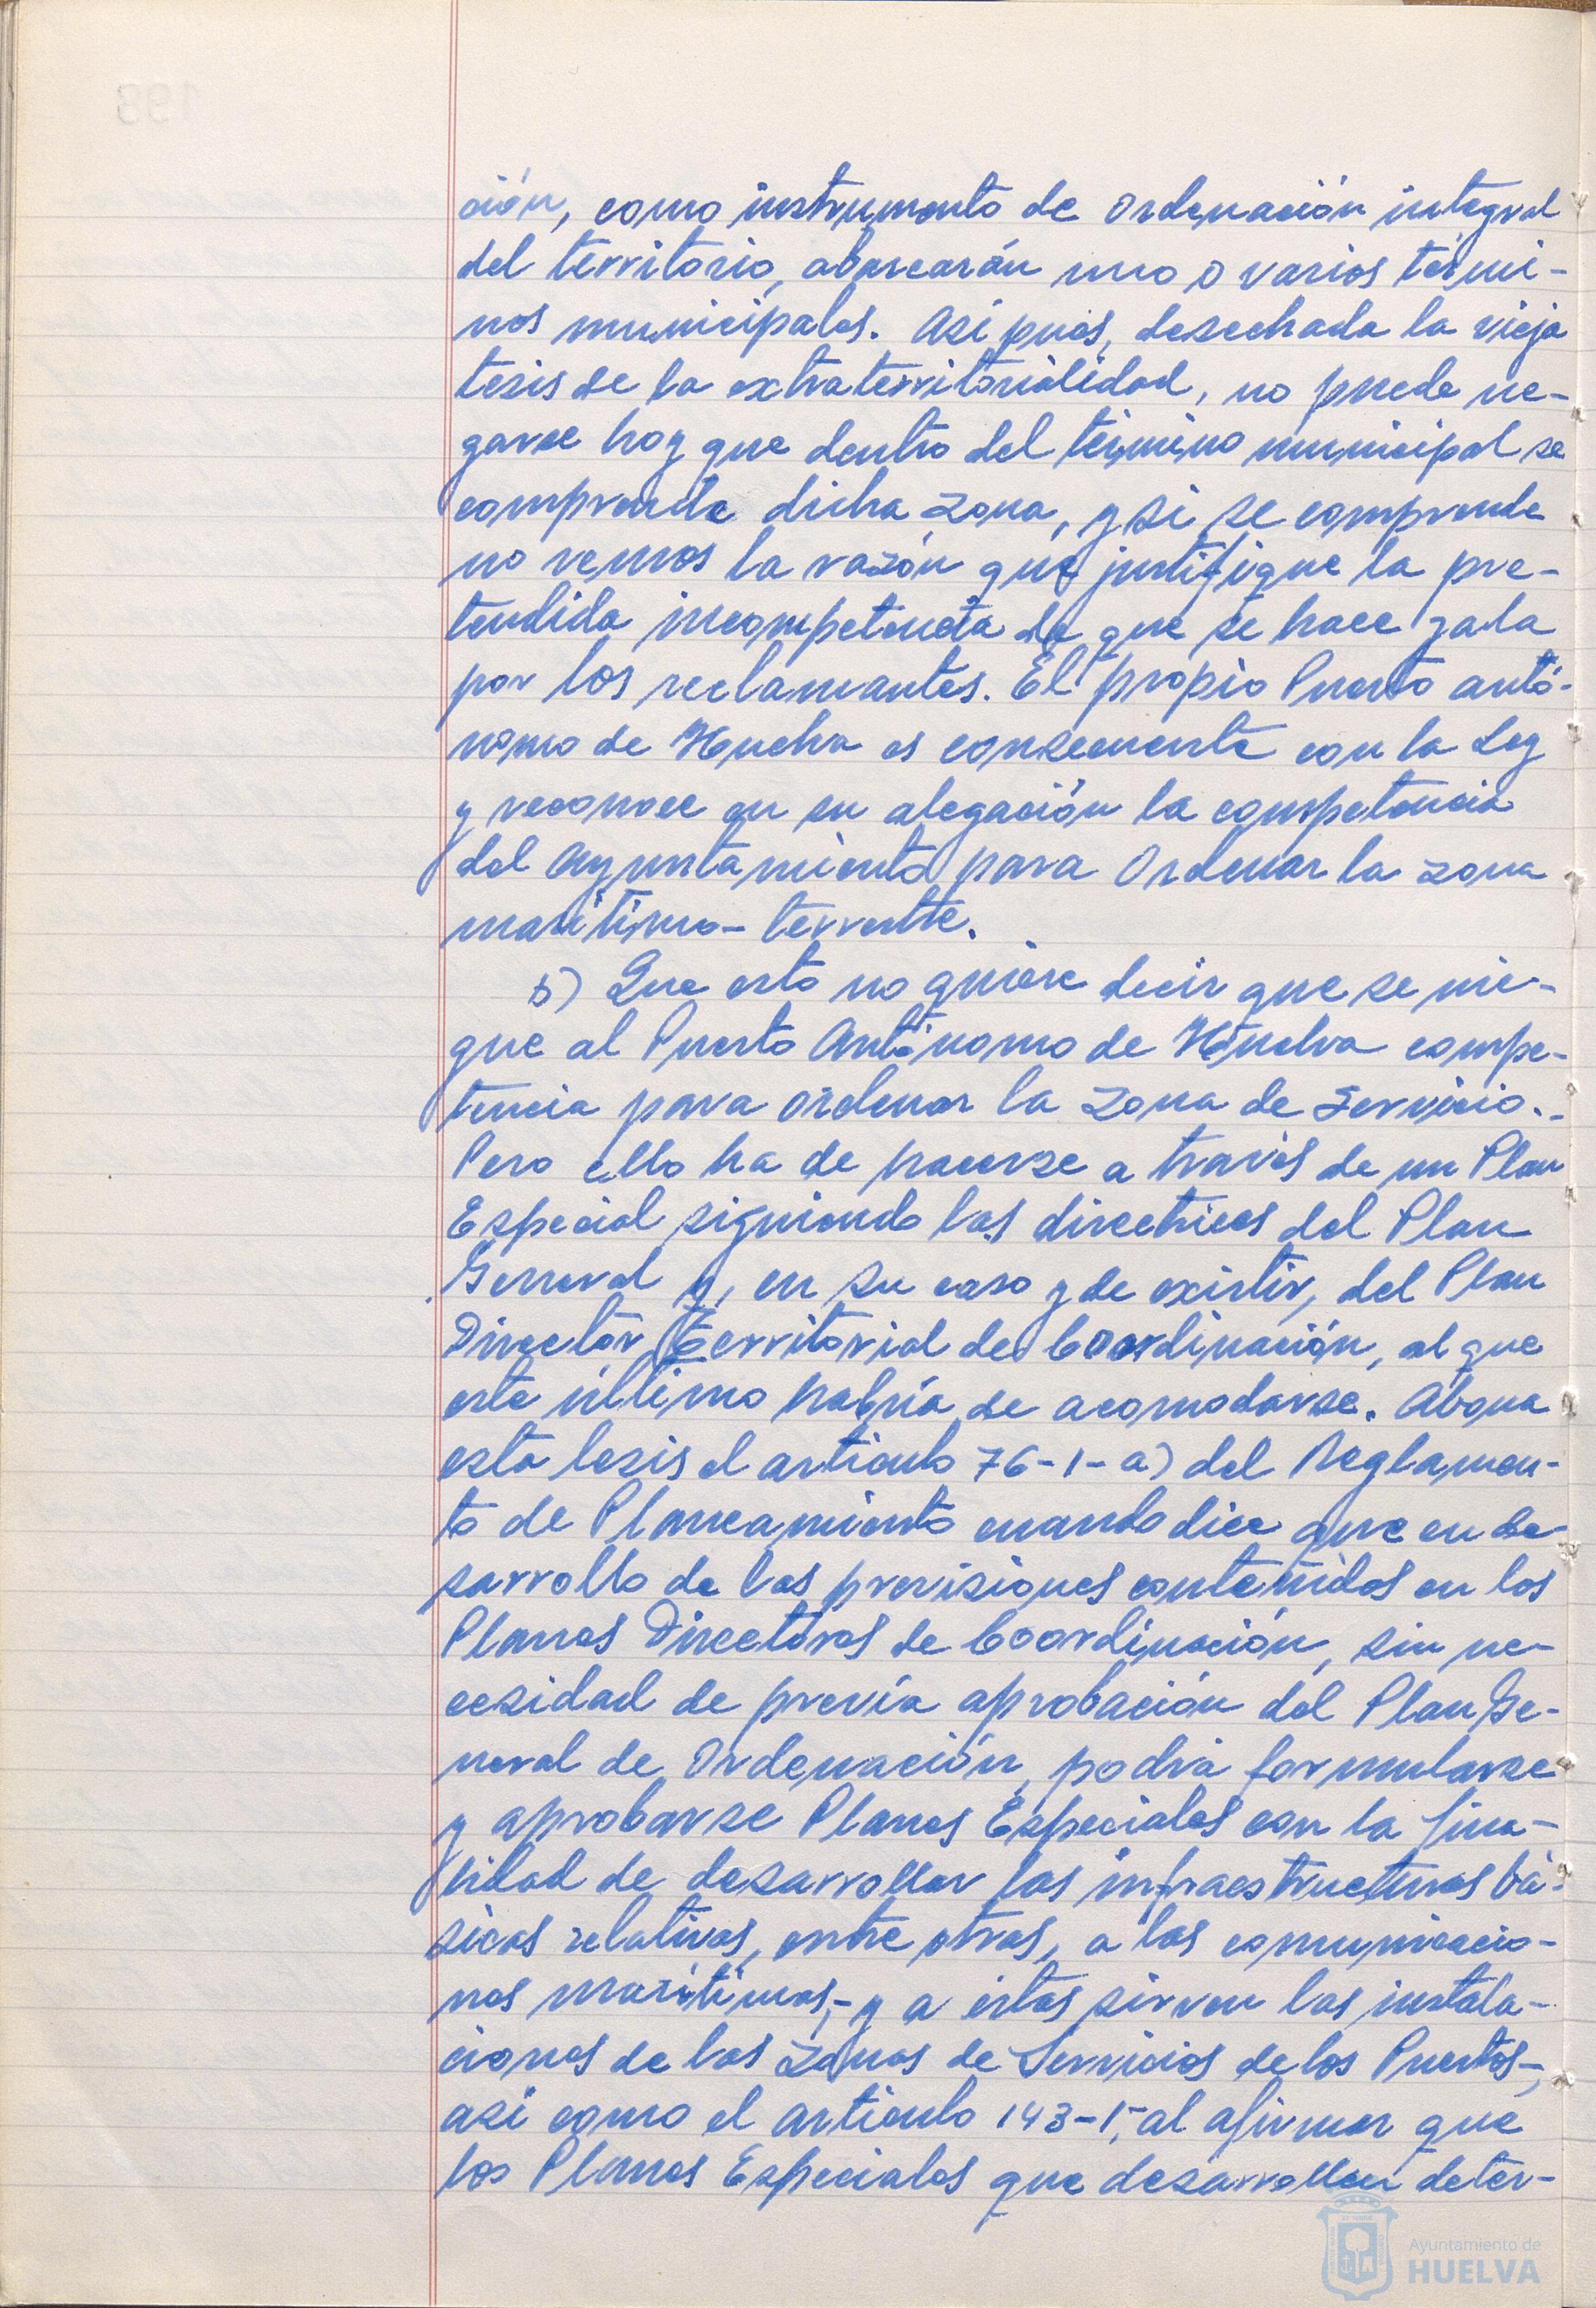 ción, como instrumento de Ordenación integral
del territorio, abarcarán uno o varios térmi-
nos municipales. Así pues, desechada la vieja
tesis de la extraterritorialidad, no puede ne-
garse hoy que dentro del término municipal se
comprende dicha zona, y si se comprende
no vemos la razón que justifique la pre-
tendida incompetencia de que se hace gala
por los reclamantes. El propio Puerto autó-
nomo de Huelva es consecuente con la Ley
y reconoce en su alegación la competencia
del Ayuntamiento para Ordenar la zona
marítimo-terrestre.
b) Que esto no quiere decir que se nie-
gue al Puerto Autónomo de Huelva compe-
tencia para ordenar la zona de Servicio.-
Pero ello ha de hacerse a través de un Plan
Especial siguiendo las directrices del Plan
General y, en su caso y de existir, del Plan
Director Territorial de Coordinación, al que
este último habría de acomodarse. Abona
esta tesis el artículo 76-1-a) del Reglamen-
to de Planeamiento cuando dice que en de-
sarrollo de las previsiones contenidas en los
Planes Directores de Coordinación, sin ne-
cesidad de previa aprobación del Plan Ge-
neral de Ordenación, podrá formularse
y aprobarse Planes Especiales con la fina-
lidad de desarrollar las infraestructuras bá-
sicas relativas, entre otras, a las comunicacio-
nes marítimas,- y a éstas sirven las instala-
ciones de las zonas de Servicios de los Puertos-,
así como el artículo 143-1, al afirmar que
los Planes Especiales que desarrollen deter-
Ayuntamiento de
HUELVA